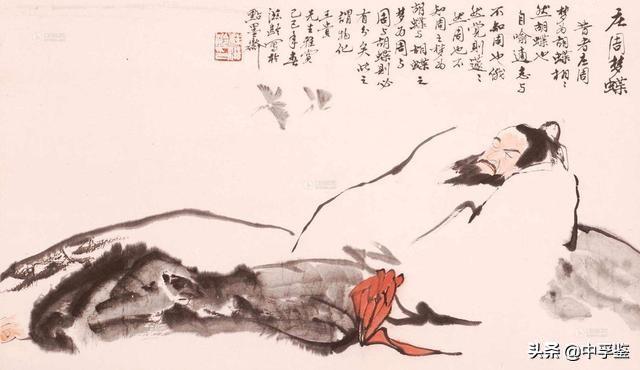 庄周梦蝶
昔者庄周
梦为胡蝶栩〻
然胡蝶也
自喻適志与
不知周也俄
然觉则蘧〻
然周也不
知周之梦为
胡蝶与胡蝶之
梦为周与
周与胡蝶则必
有分矣此之
谓物化
先生雅赏
己巳年春
墨斋
头条 @中孚鉴